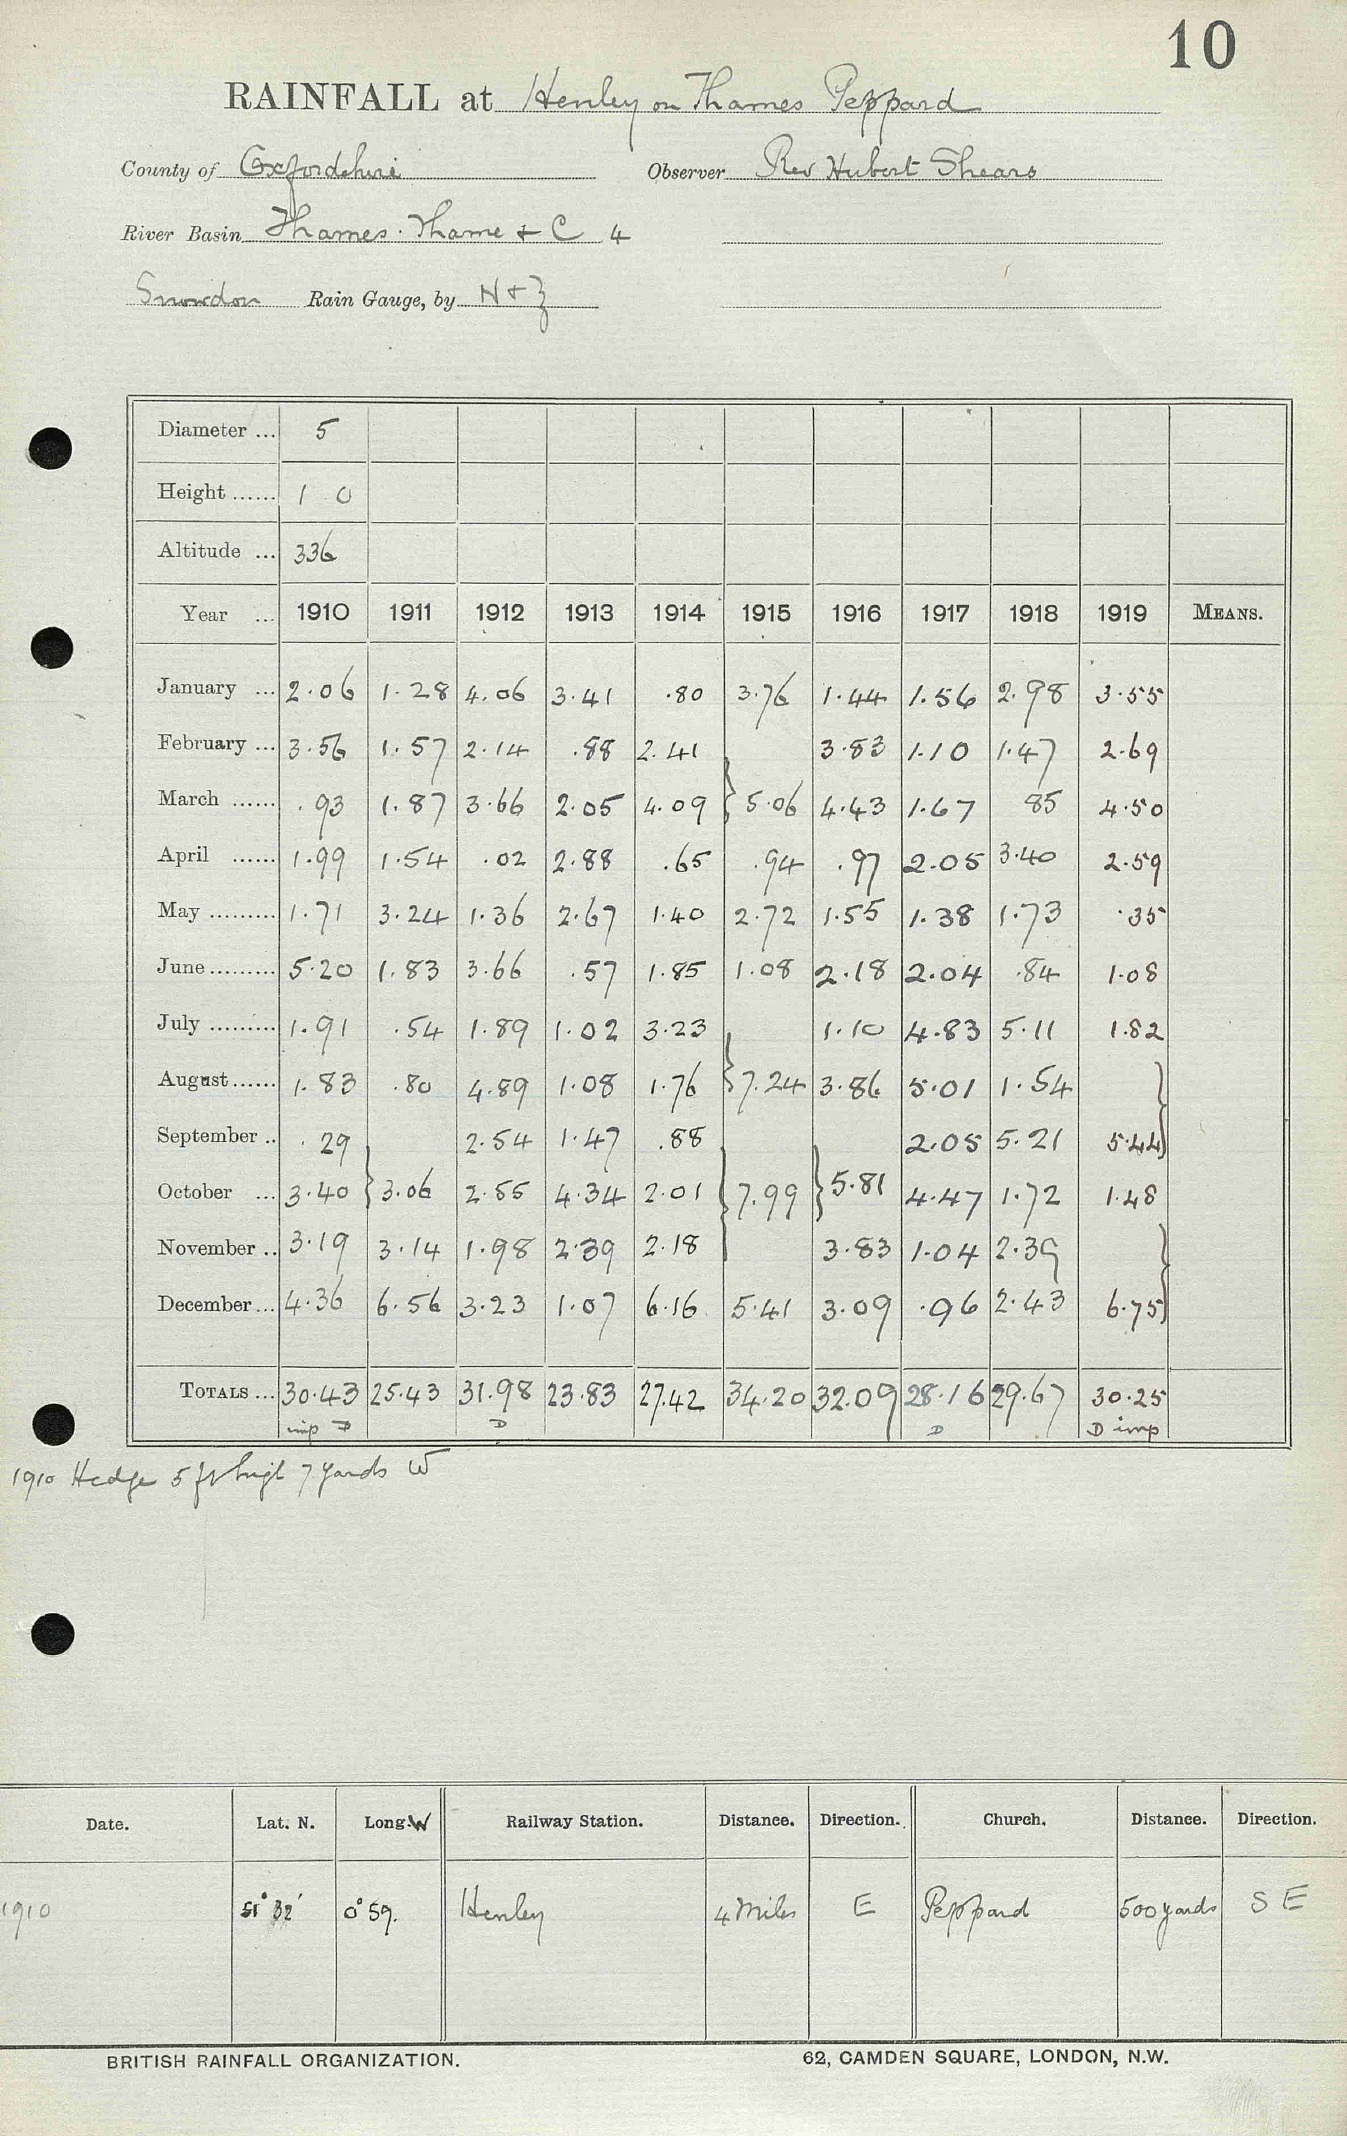 10
RAINFALL at Henley on Thames Peppard
County of Oxfordshire Observer Rev Hubert Shears
River Basin Thames. Thame & C 4
Snowdon Rain Gauge, by N & Z
Diameter ... 5
Height ...... 1 0
Altitude ... 336
Year ... 1910 1911 1912 1913 1914 1915 1916 1917 1918 1919 MEANS.
January ... 2.06 1.28 4.06 3.41 .80 3.76 1.44 1.56 2.98 3.55
February ... 3.56 1.57 2.14 .88 2.41 3.83 1.10 1.47 2.69
March ...... .93 1.87 3.66 2.05 4.09 } 5.06 4.43 1.67 85 4.50
April ...... 1.99 1.54 .02 2.88 .65 .94 .97 2.05 3.40 2.59
May ......... 1.71 3.24 1.36 2.67 1.40 2.72 1.55 1.38 1.73 .35
June ......... 5.20 1.83 3.66 .57 1.85 1.08 2.18 2.04 .84 1.08
July ......... 1.91 .54 1.89 1.02 3.23 1.10 4.83 5.11 1.82
August ...... 1.83 .80 4.89 1.08 1.76 } 7.24 3.86 5.01 1.54
September .. .29 2.54 1.47 .88 2.05 5.21 5.44 }
October ... 3.40 } 3.06 2.55 4.34 2.01 } 7.99 } 5.81 4.47 1.72 1.48
November .. 3.19 3.14 1.98 2.39 2.18 3.83 1.04 2.39
December ... 4.36 6.56 3.23 1.07 6.16 5.41 3.09 .96 2.43 6.75 }
TOTALS ... 30.43 25.43 31.98 23.83 27.42 34.20 32.09 28.16 29.67 30.25
imp D D D D imp
1910 Hedge 5 ft high 7 yards W
Date. Lat. N. Long. W Railway Station. Distance. Direction. Church. Distance. Direction.
1910 51° 32' 0° 59. Henley 4 Miles E Peppard 500 yards S E
BRITISH RAINFALL ORGANIZATION. 62, CAMDEN SQUARE, LONDON, N.W.